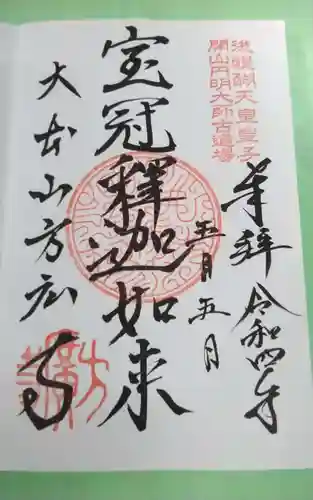 後醍醐天皇皇子
開山円明大師古道場
奉拝
令和四年
五月五日
宝冠釋迦如来
大本山方広寺